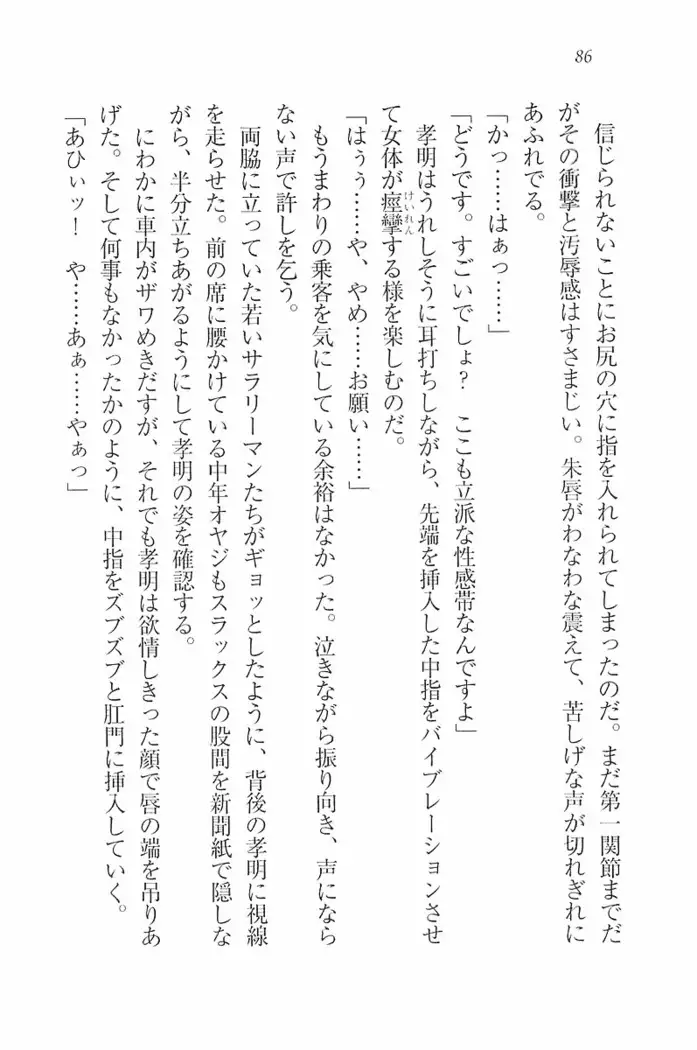 86
信じられないことにお尻の穴に指を入れられてしまったのだ。まだ第一関節までだ
がその衝撃と汚辱感はすさまじい。朱唇がわなわな震えて、苦しげな声が切れぎれに
あふれでる。
「かっ……はぁっ……」
「どうです。すごいでしょ？　ここも立派な性感帯なんですよ」
孝明はうれしそうに耳打ちしながら、先端を挿入した中指をバイブレーションさせ
て女体が痙攣する様を楽しむのだ。
「はぅぅ……や、やめ……お願い……」
もうまわりの乗客を気にしている余裕はなかった。泣きながら振り向き、声になら
ない声で許しを乞う。
両脇に立っていた若いサラリーマンたちがギョッとしたように、背後の孝明に視線
を走らせた。前の席に腰かけている中年オヤジもスラックスの股間を新聞紙で隠しな
がら、半分立ちあがるようにして孝明の姿を確認する。
にわかに車内がザワめきだすが、それでも孝明は欲情しきった顔で唇の端を吊りあ
げた。そして何事もなかったかのように、中指をズブズブと肛門に挿入していく。
「あひぃッ！　や……あぁ……やぁっ」